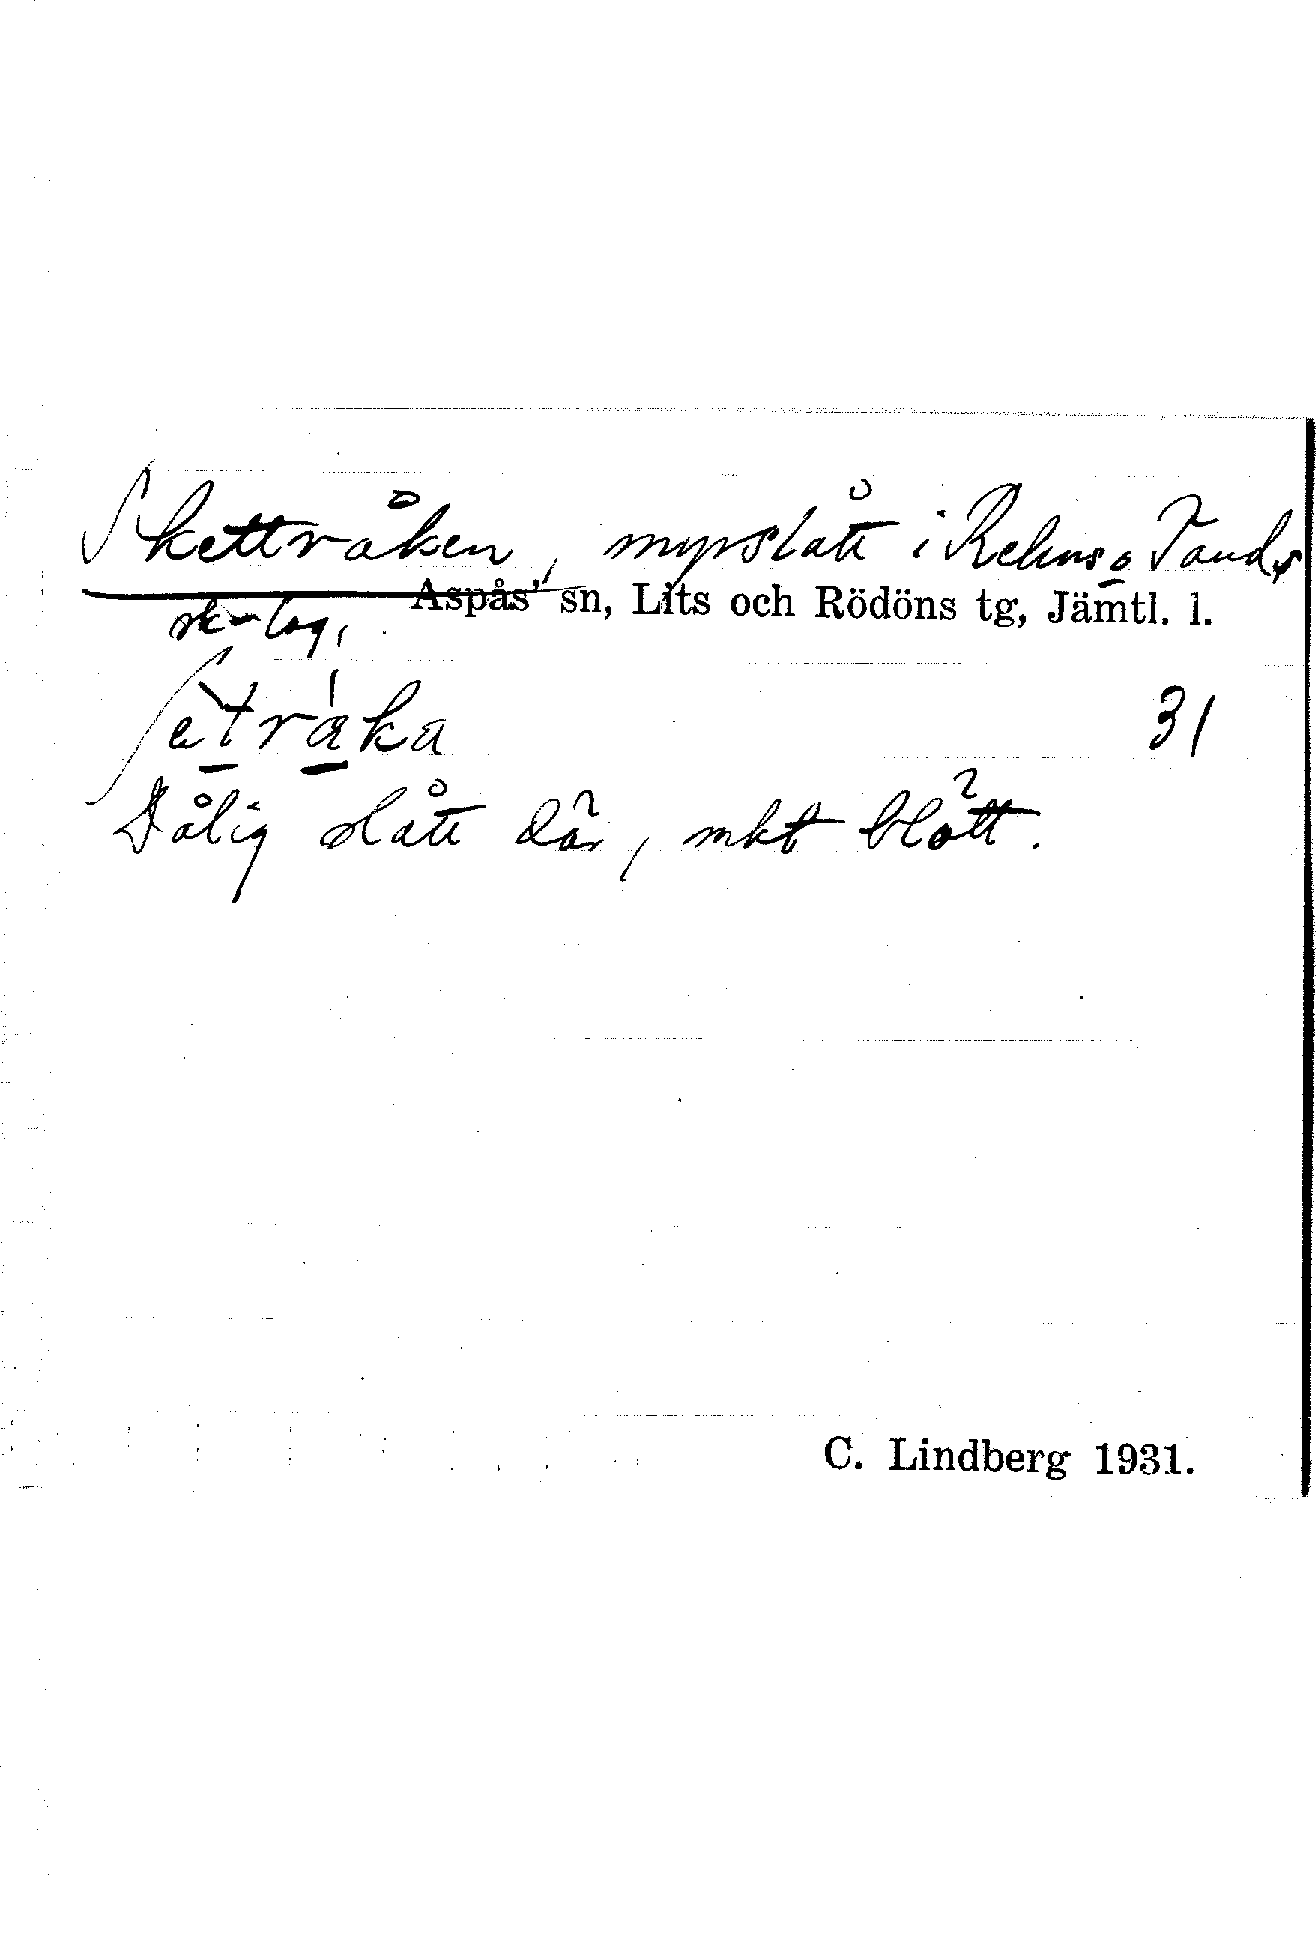 Skettråken, myrslått i Rehns o Tands
Aspås' sn, Lits och Rödöns tg, Jämtl. l.
sk-lag,
ʃètráka
31
Dålig slått där, mkt blött.
C. Lindberg 1931.